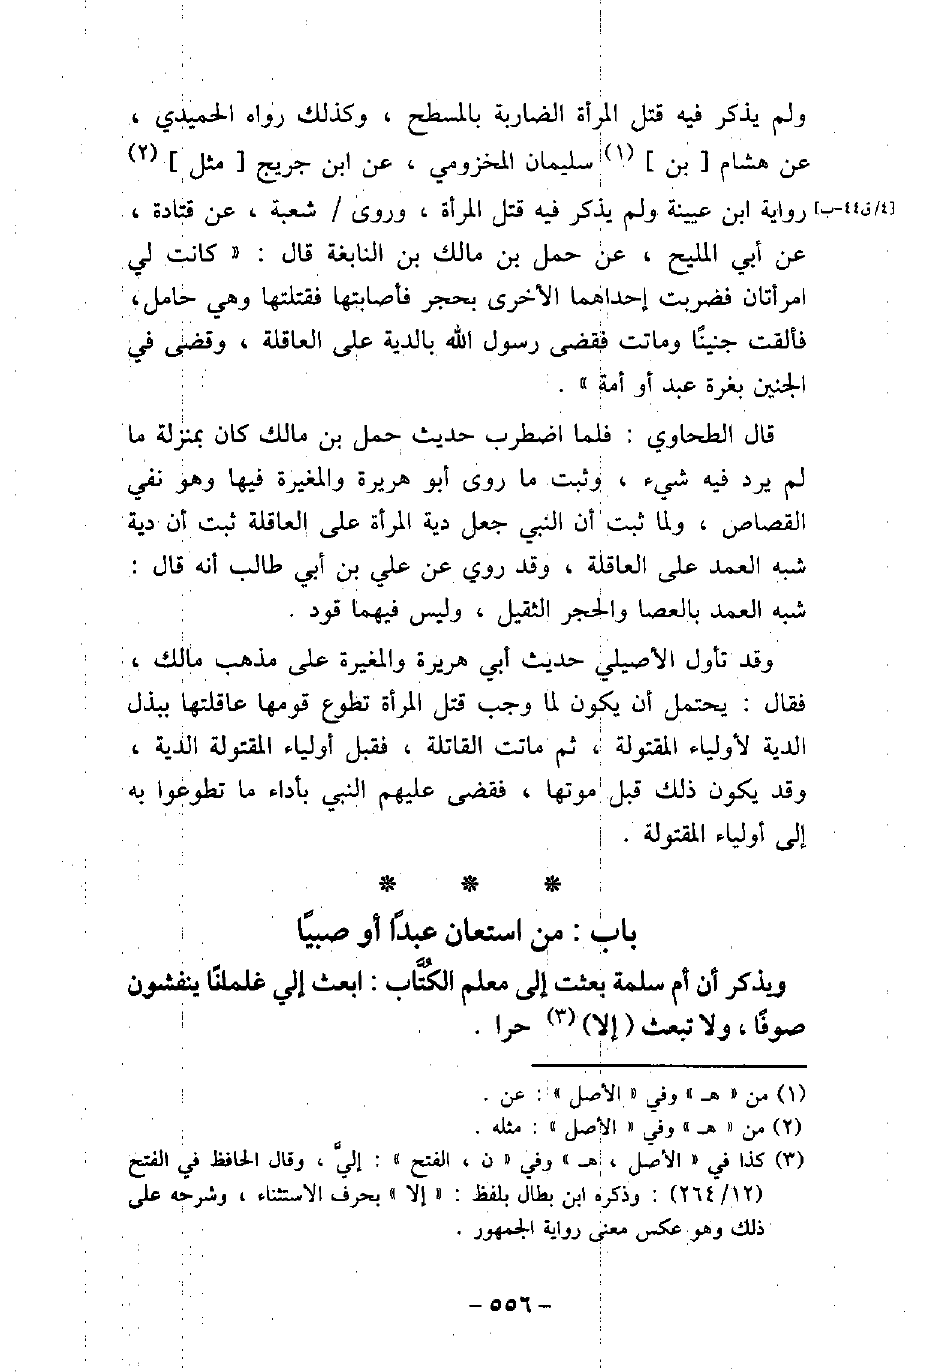 ولم يذكر فيه قتل المرأة الضاربة بالمسطح ، وكذلك رواه الحميدي ،
عن هشام [ بن ] (١) سليمان المخزومي ، عن ابن جريج [ مثل ] (٢)
[٤/ق٤٤-ب] رواية ابن عيينة ولم يذكر فيه قتل المرأة ، وروى / شعبة ، عن قتادة ،
عن أبي المليح ، عن حمل بن مالك بن النابغة قال : « كانت لي
امرأتان فضربت إحداهما الأخرى بحجر فأصابتها فقتلتها وهي حامل ،
فألقت جنينًا وماتت فقضى رسول الله بالدية على العاقلة ، وقضى في
الجنين بغرة عبد أو أمة » .
قال الطحاوي : فلما اضطرب حديث حمل بن مالك كان بمنزلة ما
لم يرد فيه شيء ، وثبت ما روى أبو هريرة والمغيرة فيها وهو نفي
القصاص ، ولما ثبت أن النبي جعل دية المرأة على العاقلة ثبت أن دية
شبه العمد على العاقلة ، وقد روي عن علي بن أبي طالب أنه قال :
شبه العمد بالعصا والحجر الثقيل ، وليس فيهما قود .
وقد تأول الأصيلي حديث أبي هريرة والمغيرة على مذهب مالك ،
فقال : يحتمل أن يكون لما وجب قتل المرأة تطوع قومها عاقلتها ببذل
الدية لأولياء المقتولة ، ثم ماتت القاتلة ، فقبل أولياء المقتولة الدية ،
وقد يكون ذلك قبل موتها ، فقضى عليهم النبي بأداء ما تطوعوا به
إلى أولياء المقتولة .
* * *
باب : من استعان عبدًا أو صبيًا
ويذكر أن أم سلمة بعثت إلى معلم الكُتَّاب : ابعث إلي غلمانًا ينفشون
صوفًا ، ولا تبعث ( إلا ) (٣) حرا .
(١) من « هـ » وفي « الأصل » : عن .
(٢) من « هـ » وفي « الأصل » : مثله .
(٣) كذا في « الأصل ، هـ » وفي « ن ، الفتح » : إليَّ ، وقال الحافظ في الفتح
(١٢/ ٢٦٤) : وذكره ابن بطال بلفظ : « إلا » بحرف الاستثناء ، وشرحه على
ذلك وهو عكس معنى رواية الجمهور .
- ٥٥٦ -